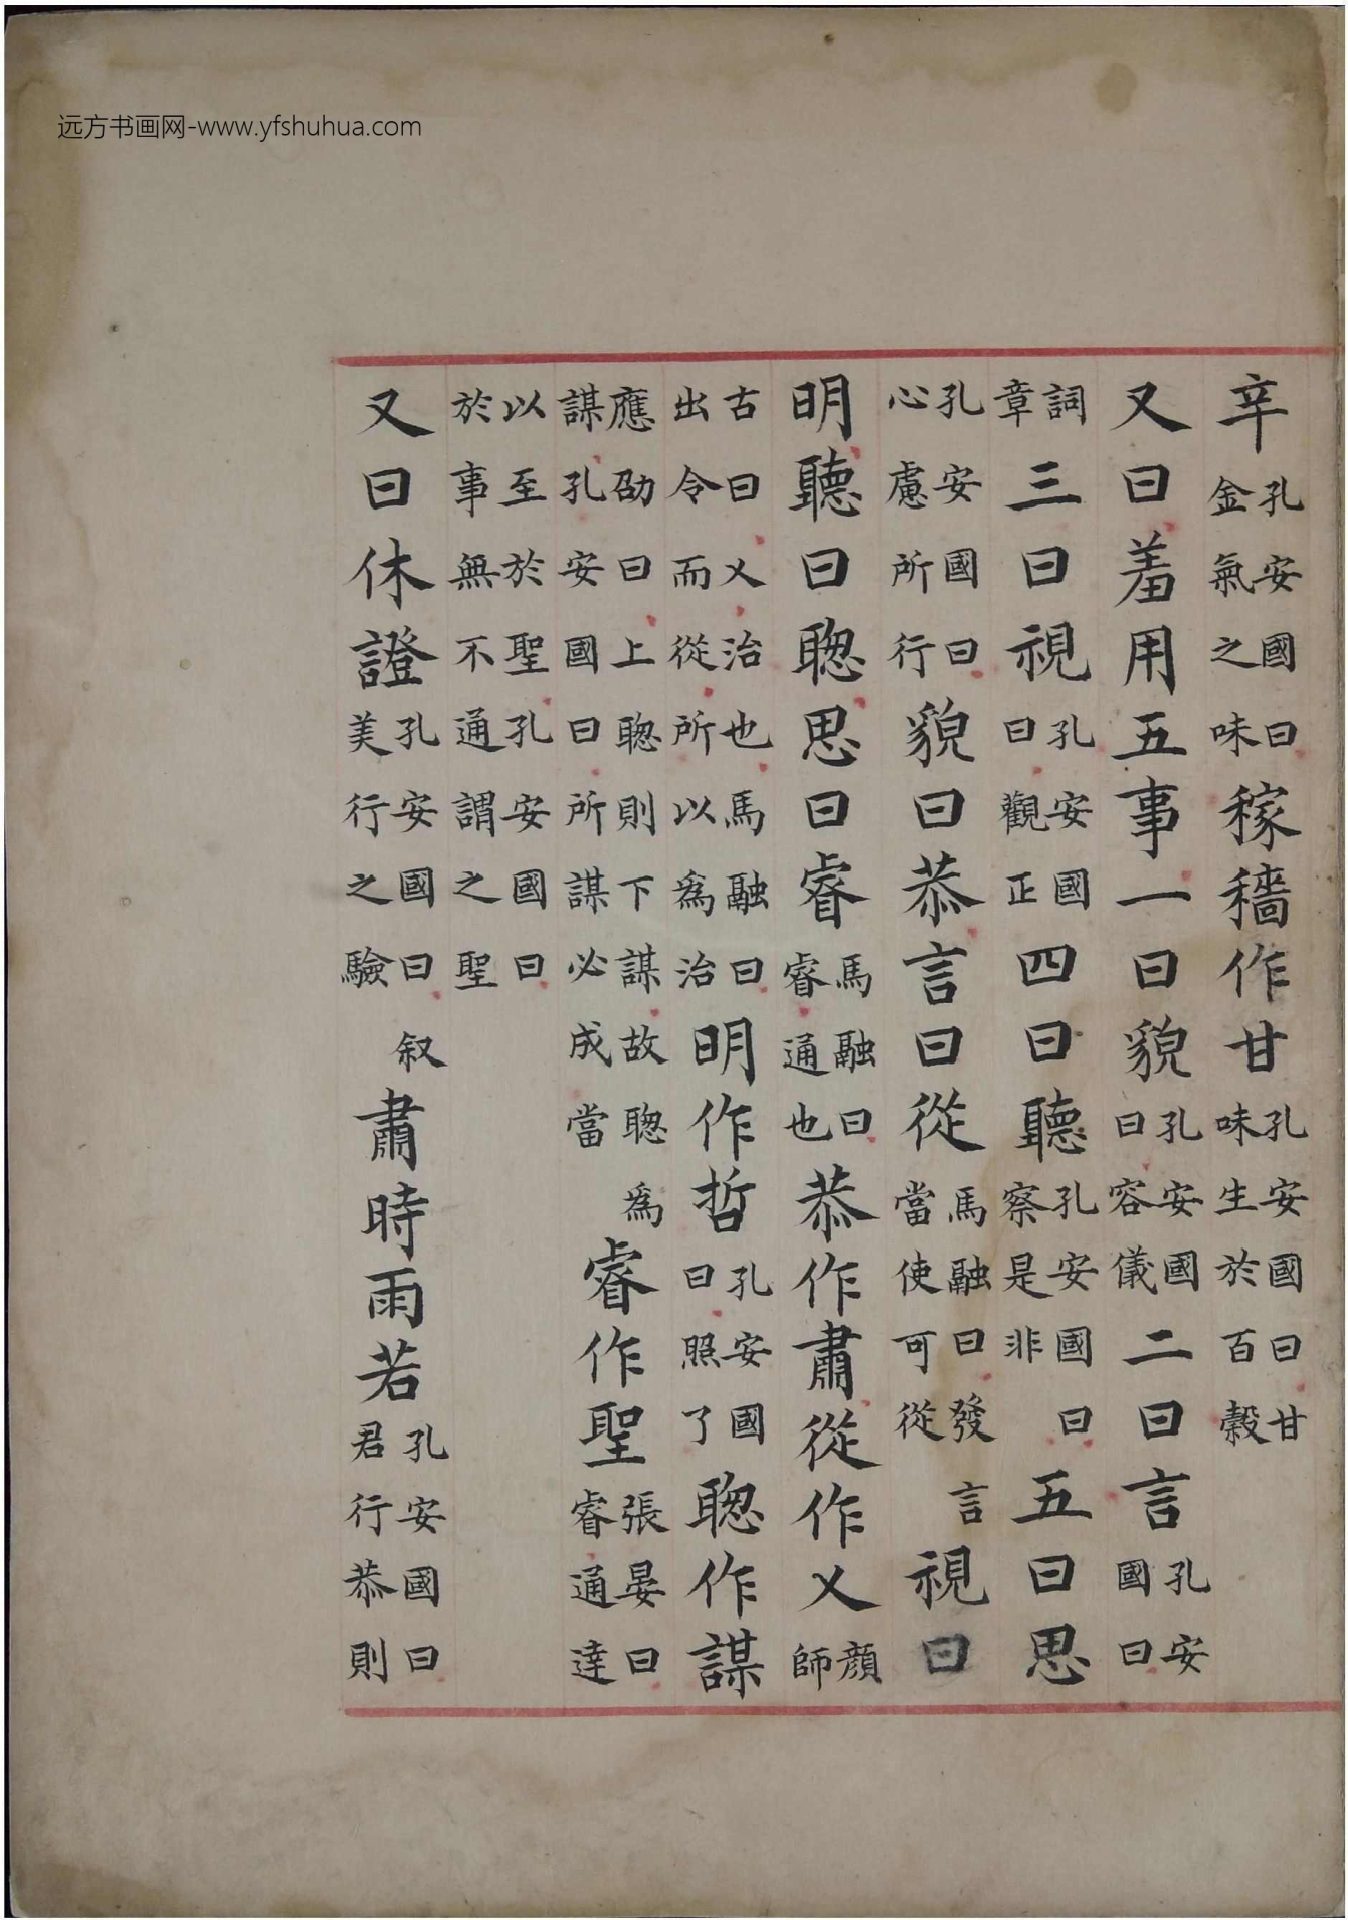 远方书画网-www.yfshuhua.com
辛孔安國曰金氣之味稼穡作甘孔安國曰甘味生於百穀
又曰羞用五事一曰貌孔安國曰容儀二曰言孔安國曰
詞章三曰視孔安國曰觀正四曰聽孔安國曰察是非五曰思
孔安國曰心慮所行貌曰恭言曰從馬融曰發言當使可從視曰
明聽曰聰思曰睿馬融曰睿通也恭作肅從作乂顏師
古曰乂治也馬融曰出令而從所以為治明作哲孔安國曰照了聰作謀
應劭曰上聰則下謀故聰為謀孔安國曰所謀必成當睿作聖張晏曰睿通達
以至於聖孔安國曰於事無不通謂之聖
又曰休證孔安國曰叙美行之驗肅時雨若孔安國曰君行恭則